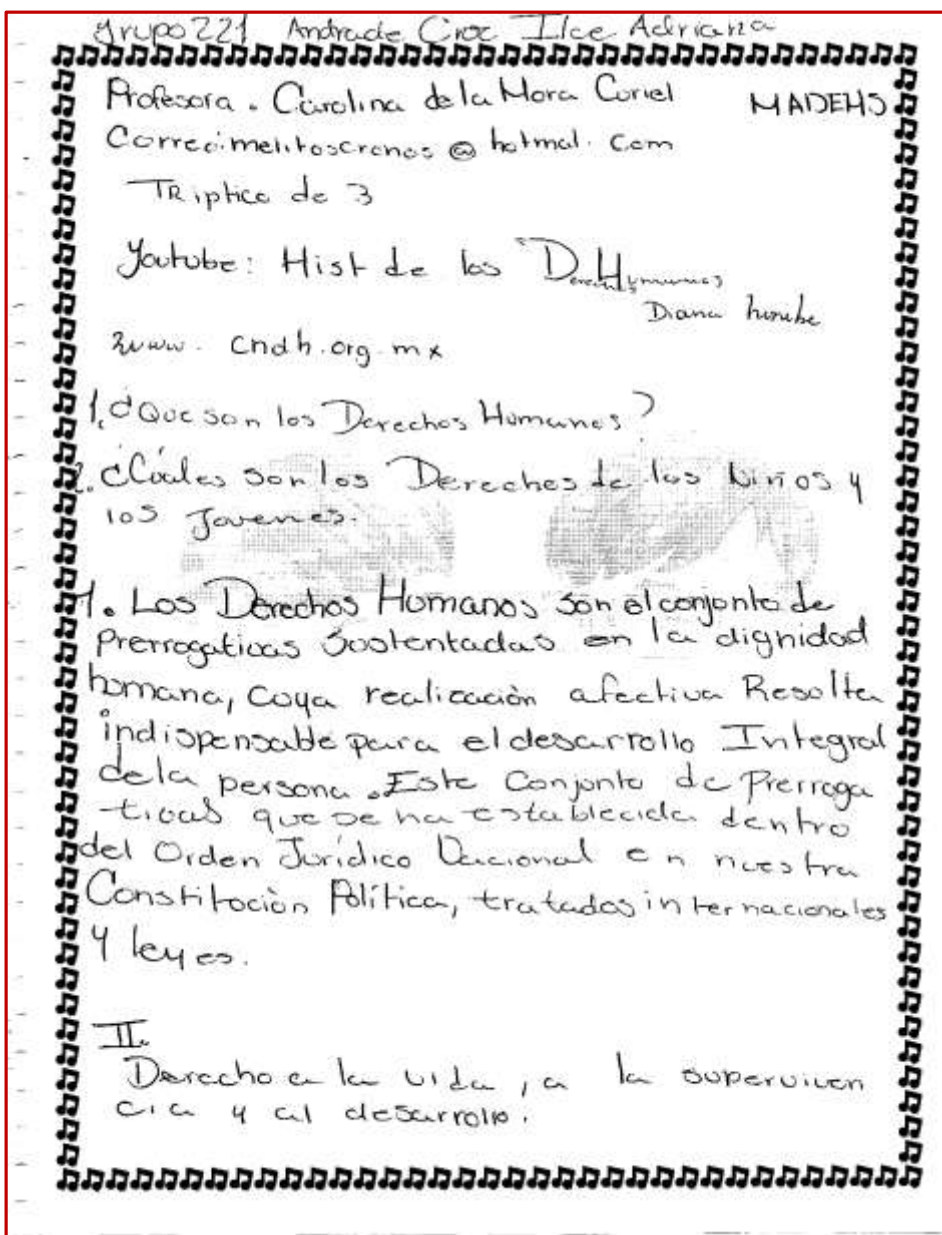 grupo 221 Andrade Croc Ilce Adriana
Profesora. Carolina de la Mora Curiel MADEHS
Correo:melitoscronos@hotmal.com
TRiptico de 3
Youtube: Hist de los Derechos Humunos
Diana
www.cndh.org.mx
1.¿Que son los Derechos Humanos?
2.¿Cuales son los Derechos de los Niños y
los Jovenes.
1. Los Derechos Homanos son el conjonto de
Prerrogativas Sostentadas en la dignidad
homana, coya realización afectiva Resolta
indispensable para el desarrollo Integral
de la persona. Este Conjonto de Prerroga
tivas que se ha establecida dentro
del Orden Jorídico Nacional en nuestra
Constitoción Política, tratados internacionales
y leyes.
II.
Derecho a la vida, a la superviven
cia y al desarrollo.